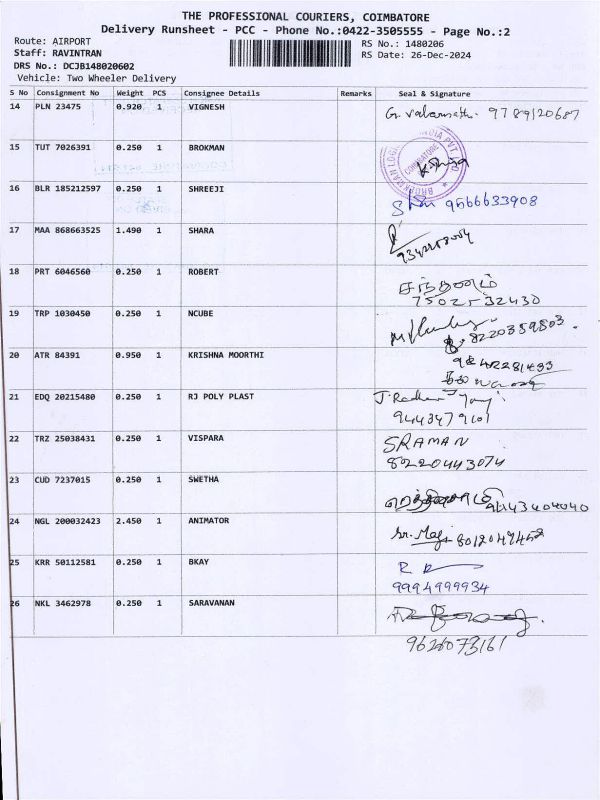 THE PROFESSIONAL COURIERS, COIMBATORE
Delivery Runsheet - PCC - Phone No.:0422-3505555 - Page No.:2
Route: AIRPORT
Staff: RAVINTRAN
DRS No.: DCJB148020602
Vehicle: Two Wheeler Delivery
RS No.: 1480206
RS Date: 26-Dec-2024
S No Consignment No Weight PCS Consignee Details Remarks Seal & Signature
14 PLN 23475 0.920 1 VIGNESH 9789120687
15 TUT 7026391 0.250 1 BROKMAN COIMBATORE
16 BLR 185212597 0.250 1 SHREEJI 9566633908
17 MAA 868663525 1.490 1 SHARA
18 PRT 6046560 0.250 1 ROBERT
7502532430
19 TRP 1030450 0.250 1 NCUBE 8220359803.
20 ATR 84391 0.950 1 KRISHNA MOORTHI
21 EDQ 20215480 0.250 1 RJ POLY PLAST
9443479101
22 TRZ 25038431 0.250 1 VISPARA SRAMAN
8220443074
23 CUD 7237015 0.250 1 SWETHA
24 NGL 200032423 2.450 1 ANIMATOR
25 KRR 50112581 0.250 1 BKAY
9994999934
26 NKL 3462978 0.250 1 SARAVANAN
9626073161